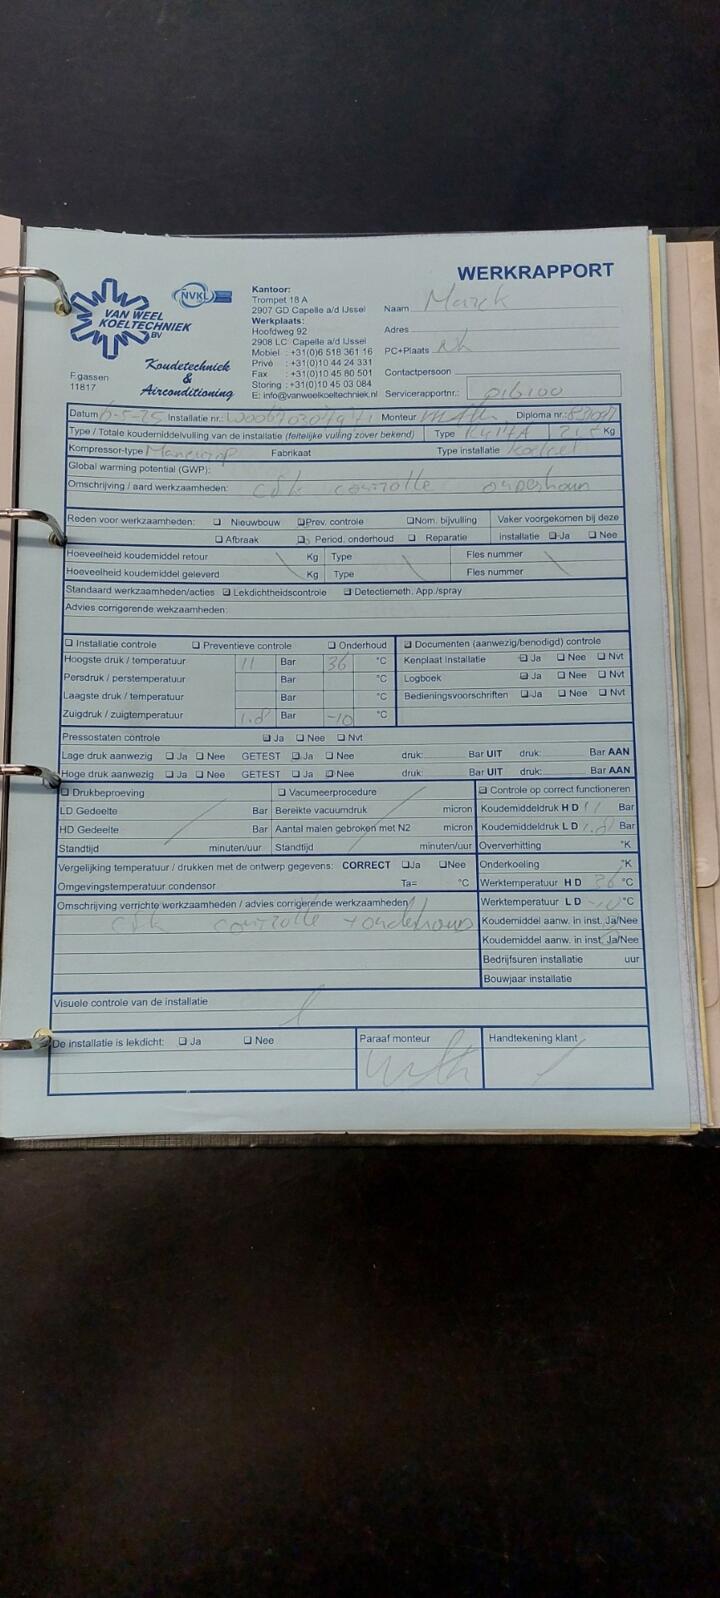 WERKRAPPORT
VAN WEEL
KOELTECHNIEK
BV
NVKL
Koudetechniek
&
Airconditioning
F.gassen
11817
Kantoor:
Trompet 18 A
2907 GD Capelle a/d IJssel
Werkplaats:
Hoofdweg 92
2908 LC Capelle a/d IJssel
Mobiel : +31(0)6 518 361 16
Privé : +31(0)10 44 24 331
Fax : +31(0)10 45 80 501
Storing : +31(0)10 45 03 084
E: info@vanweelkoeltechniek.nl
Naam
Adres
PC+Plaats
Contactpersoon
Servicerapportnr.: 016100
Datum Installatie nr.: Monteur Diploma nr.:
Type / Totale koudemiddelvulling van de installatie (feitelijke vulling zover bekend) Type Kg
Kompressor-type Maneurop Fabrikaat Type installatie
Global warming potential (GWP):
Omschrijving / aard werkzaamheden: controlle
Reden voor werkzaamheden: Nieuwbouw Prev. controle Nom. bijvulling Vaker voorgekomen bij deze
Afbraak Period. onderhoud Reparatie installatie Ja Nee
Hoeveelheid koudemiddel retour Kg Type Fles nummer
Hoeveelheid koudemiddel geleverd Kg Type Fles nummer
Standaard werkzaamheden/acties Lekdichtheidscontrole Detectiemeth. App./spray
Advies corrigerende wekzaamheden:
Installatie controle Preventieve controle Onderhoud Documenten (aanwezig/benodigd) controle
Hoogste druk / temperatuur 11 Bar 36 °C Kenplaat Installatie Ja Nee Nvt
Persdruk / perstemperatuur Bar °C Logboek Ja Nee Nvt
Laagste druk / temperatuur Bar °C Bedieningsvoorschriften Ja Nee Nvt
Zuigdruk / zuigtemperatuur 1.8 Bar -10 °C
Pressostaten controle Ja Nee Nvt
Lage druk aanwezig Ja Nee GETEST Ja Nee druk: Bar UIT druk: Bar AAN
Hoge druk aanwezig Ja Nee GETEST Ja Nee druk: Bar UIT druk: Bar AAN
Drukbeproeving Vacumeerprocedure Controle op correct functioneren
LD Gedeelte Bar Bereikte vacuumdruk micron Koudemiddeldruk H D 11 Bar
HD Gedeelte Bar Aantal malen gebroken met N2 micron Koudemiddeldruk L D 1.8 Bar
Standtijd minuten/uur Standtijd minuten/uur Oververhitting °K
Vergelijking temperatuur / drukken met de ontwerp gegevens: CORRECT Ja Nee Onderkoeling °K
Omgevingstemperatuur condensor Ta= °C Werktemperatuur H D 36 °C
Omschrijving verrichte werkzaamheden / advies corrigerende werkzaamheden Werktemperatuur L D -10 °C
controlle + onderhoud Koudemiddel aanw. in inst. Ja/Nee
Koudemiddel aanw. in inst. Ja/Nee
Bedrijfsuren installatie uur
Bouwjaar installatie
Visuele controle van de installatie
De installatie is lekdicht: Ja Nee Paraaf monteur Handtekening klant